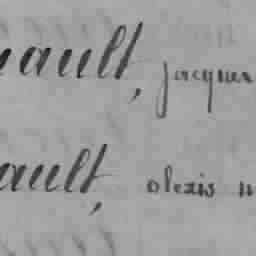 nault, jacques
ault, alexis